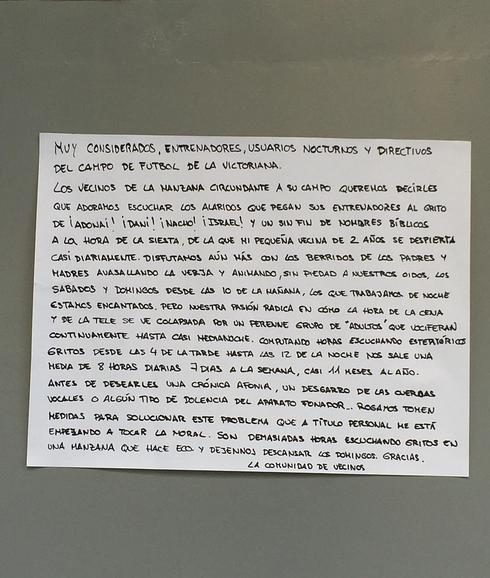 MUY CONSIDERADOS, ENTRENADORES, USUARIOS NOCTURNOS Y DIRECTIVOS
DEL CAMPO DE FUTBOL DE LA VICTORIANA.
LOS VECINOS DE LA MANZANA CIRCUNDANTE A SU CAMPO QUEREMOS DECIRLES
QUE ADORAMOS ESCUCHAR LOS ALARIDOS QUE PEGAN SUS ENTRENADORES AL GRITO
DE ¡ADONAI! ¡DANI! ¡NACHO! ¡ISRAEL! Y UN SIN FIN DE NOMBRES BÍBLICOS
A LA HORA DE LA SIESTA, DE LA QUE MI PEQUEÑA VECINA DE 2 AÑOS SE DESPIERTA
CASI DIARIAMENTE. DISFUTAMOS AÚN MÁS CON LOS BERRIDOS DE LOS PADRES Y
MADRES AVASALLANDO LA VERJA Y ANIMANDO, SIN PIEDAD A NUESTROS OIDOS, LOS
SÁBADOS Y DOMINGOS DESDE LAS 10 DE LA MAÑANA, LOS QUE TRABAJAMOS DE NOCHE
ESTAMOS ENCANTADOS. PERO NUESTRA PASIÓN RADICA EN CÓMO LA HORA DE LA CENA
Y DE LA TELE SE VE COLAPSADA POR UN PERENNE GRUPO DE "ADULTOS" QUE VOCIFERAN
CONTINUAMENTE HASTA CASI MEDIANOCHE. COMPUTANDO HORAS ESCUCHANDO ESTERTÓRICOS
GRITOS DESDE LAS 4 DE LA TARDE HASTA LAS 12 DE LA NOCHE NOS SALE UNA
MEDIA DE 8 HORAS DIARIAS 7 DIAS A LA SEMANA, CASI 11 MESES AL AÑO.
ANTES DE DESEARLES UNA CRÓNICA AFONIA, UN DESGARRO DE LAS CUERDAS
VOCALES O ALGÚN TIPO DE DOLENCIA DEL APARATO FONADOR... ROGAMOS TOMEN
MEDIDAS PARA SOLUCIONAR ESTE PROBLEMA QUE A TÍTULO PERSONAL ME ESTÁ
EMPEZANDO A TOCAR LA MORAL. SON DEMASIADAS HORAS ESCUCHANDO GRITOS EN
UNA MANZANA QUE HACE ECO. Y DEJENNOS DESCANSAR LOS DOMINGOS. GRACIAS.
LA COMUNIDAD DE VECINOS